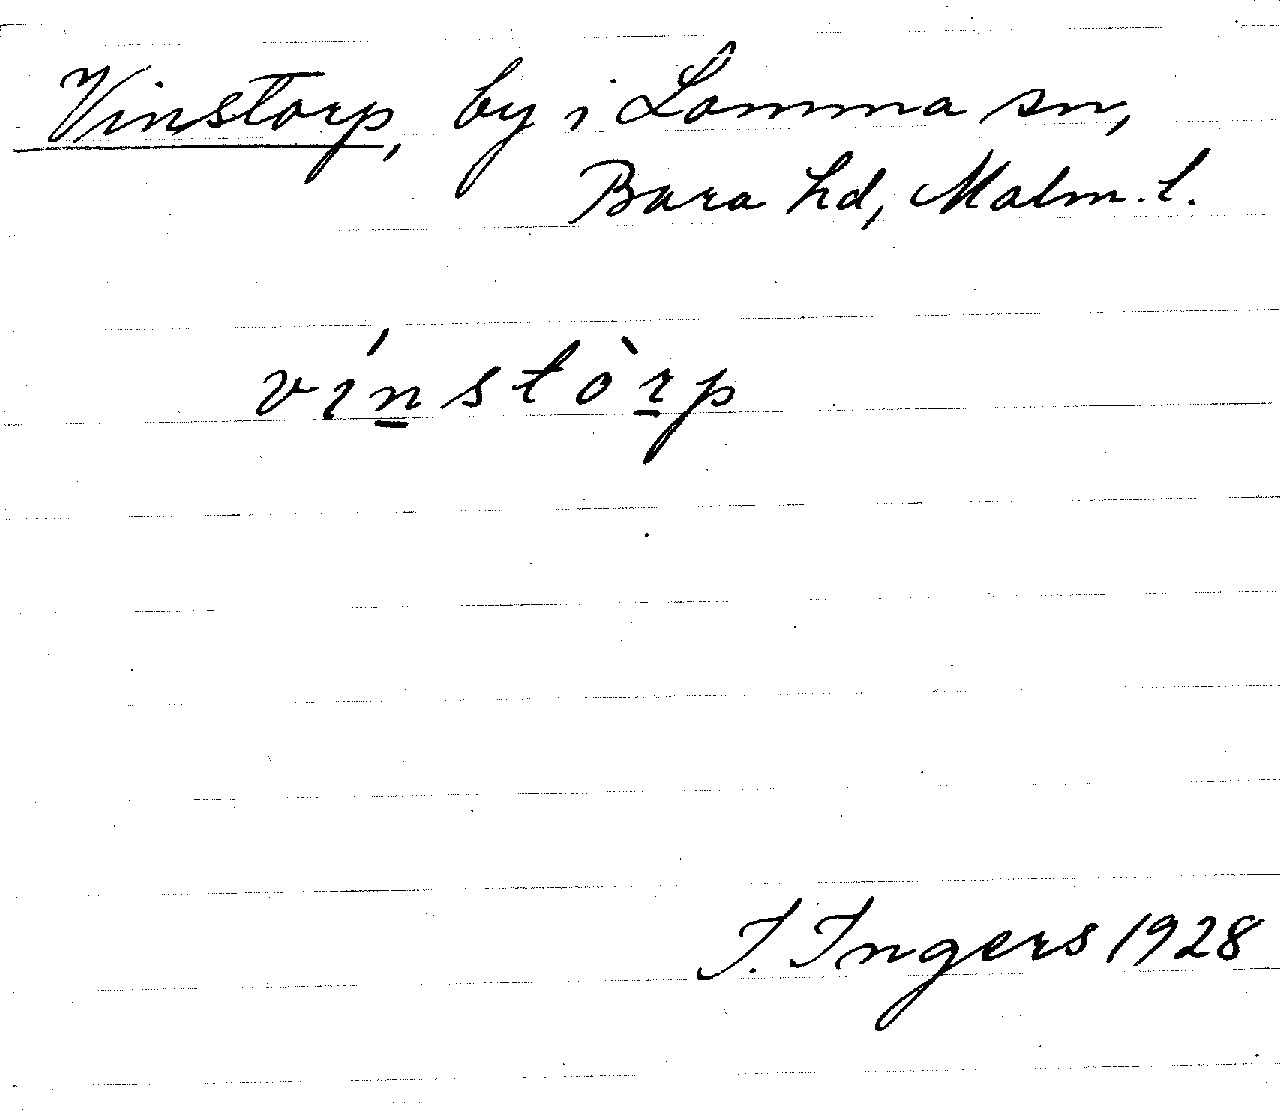 Vinstorp, by i Lomma sn,
Bara hd, Malm. l.
viństòrp
I. Ingers 1928